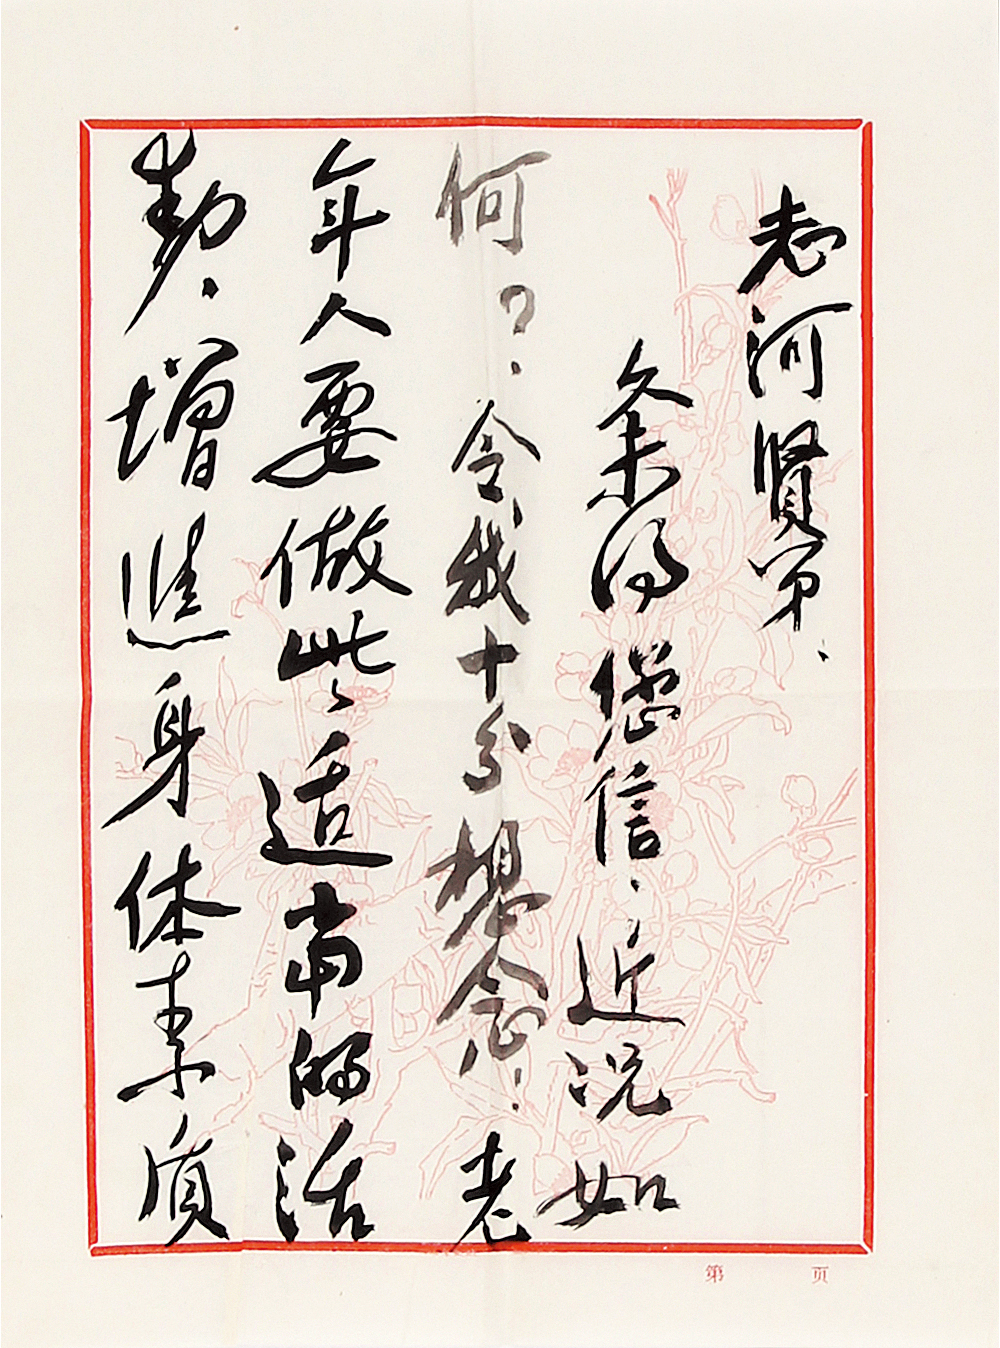 老河贤弟、
久未得您信、近况如
何？、令我十分想念、老
年人要做些、适当的活
动、增进身体素质
第 页